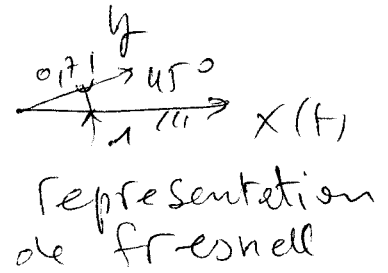 y
0,71 45°
1 X(t)
representation
de fresnell